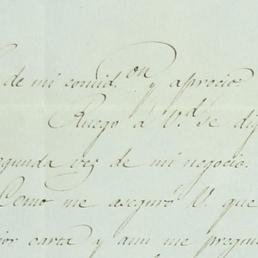 de mi considon y aprecio
Ruego á Vd se dig
egunda vez de mi negocio.
Como me aseguró V. que
ior carta y aun me pregun